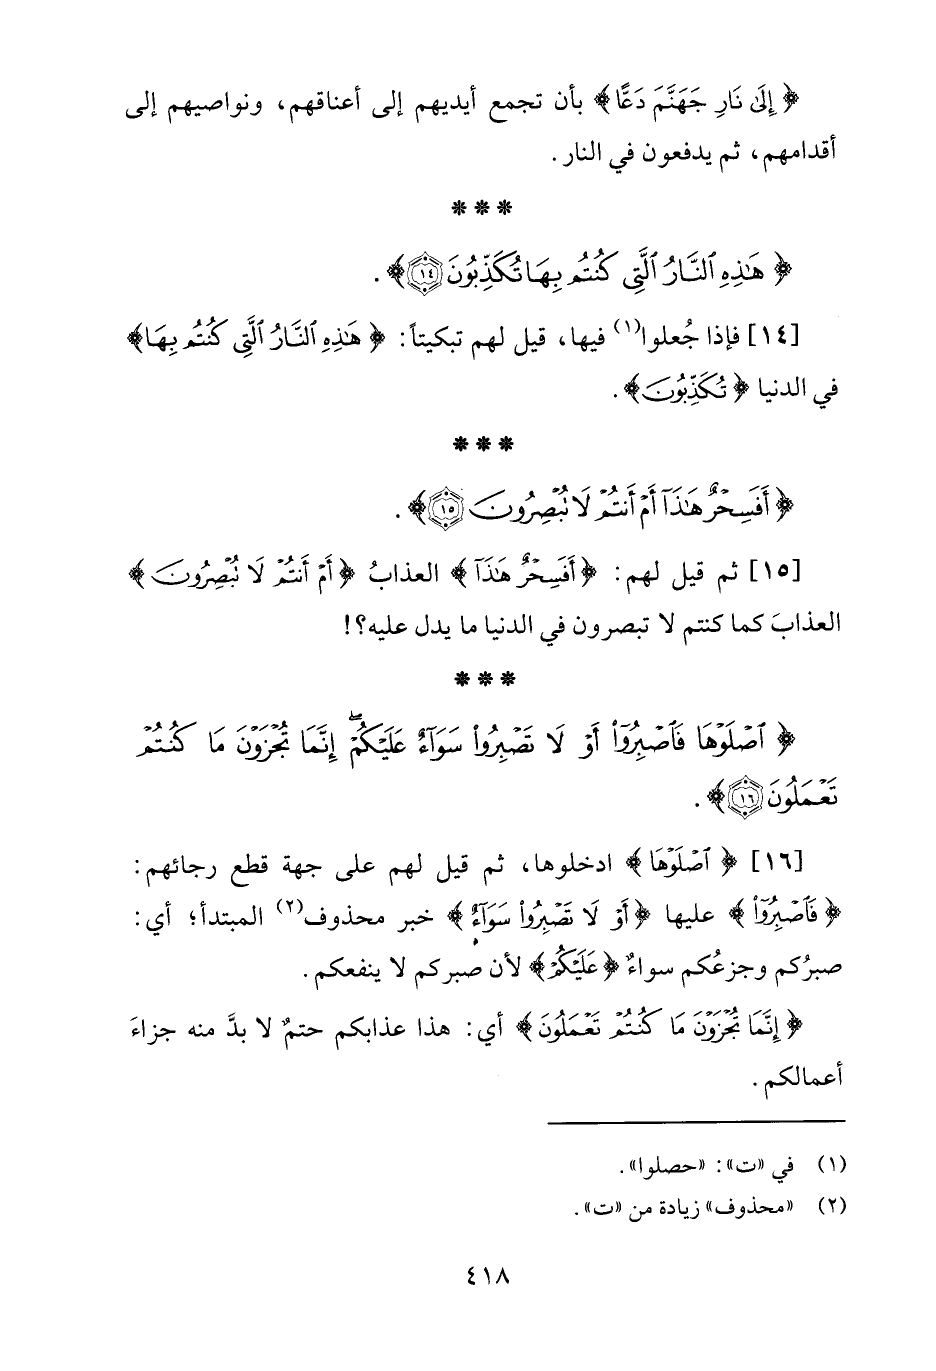 ﴿إِلَىٰ نَارِ جَهَنَّمَ دَعًّا﴾ بأن تجمع أيديهم إلى أعناقهم، ونواصيهم إلى
أقدامهم، ثم يدفعون في النار.
* * *
﴿هَٰذِهِ ٱلنَّارُ ٱلَّتِي كُنتُم بِهَا تُكَذِّبُونَ ١٤﴾.
[١٤] فإذا جُعلوا(١) فيها، قيل لهم تبكيتاً: ﴿هَٰذِهِ ٱلنَّارُ ٱلَّتِي كُنتُم بِهَا﴾
في الدنيا ﴿تُكَذِّبُونَ﴾.
* * *
﴿أَفَسِحْرٌ هَٰذَآ أَمْ أَنتُمْ لَا تُبْصِرُونَ ١٥﴾.
[١٥] ثم قيل لهم: ﴿أَفَسِحْرٌ هَٰذَآ﴾ العذابُ ﴿أَمْ أَنتُمْ لَا تُبْصِرُونَ﴾
العذابَ كما كنتم لا تبصرون في الدنيا ما يدل عليه؟!
* * *
﴿ٱصْلَوْهَا فَٱصْبِرُوٓا۟ أَوْ لَا تَصْبِرُوا۟ سَوَآءٌ عَلَيْكُمْ ۖ إِنَّمَا تُجْزَوْنَ مَا كُنتُمْ
تَعْمَلُونَ ١٦﴾.
[١٦] ﴿ٱصْلَوْهَا﴾ ادخلوها، ثم قيل لهم على جهة قطع رجائهم:
﴿فَٱصْبِرُوٓا۟﴾ عليها ﴿أَوْ لَا تَصْبِرُوا۟ سَوَآءٌ﴾ خبر محذوف(٢) المبتدأ؛ أي:
صبرُكم وجزعُكم سواءٌ ﴿عَلَيْكُمْ﴾ لأن صبركم لا ينفعكم.
﴿إِنَّمَا تُجْزَوْنَ مَا كُنتُمْ تَعْمَلُونَ﴾ أي: هذا عذابكم حتمٌ لا بدَّ منه جزاءَ
أعمالكم.
(١) في «ت»: «حصلوا».
(٢) «محذوف» زيادة من «ت».
٤١٨